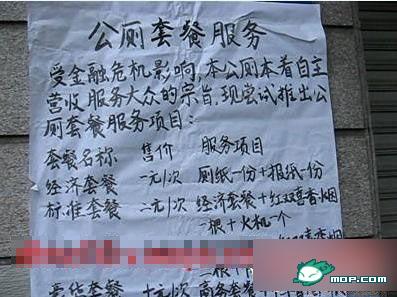 公厕套餐服务
受金融危机影响,本公厕本着自主
营收服务大众的宗旨.现尝试推出公
厕套餐服务项目:
套餐名称 售价 服务项目
经济套餐 一元/次 厕纸一份+报纸一份
标准套餐 二元/次 经济套餐+红双喜香烟
一根+火机一个
红双喜香烟
豪华套餐 十元/次 商务套餐
MOP.COM